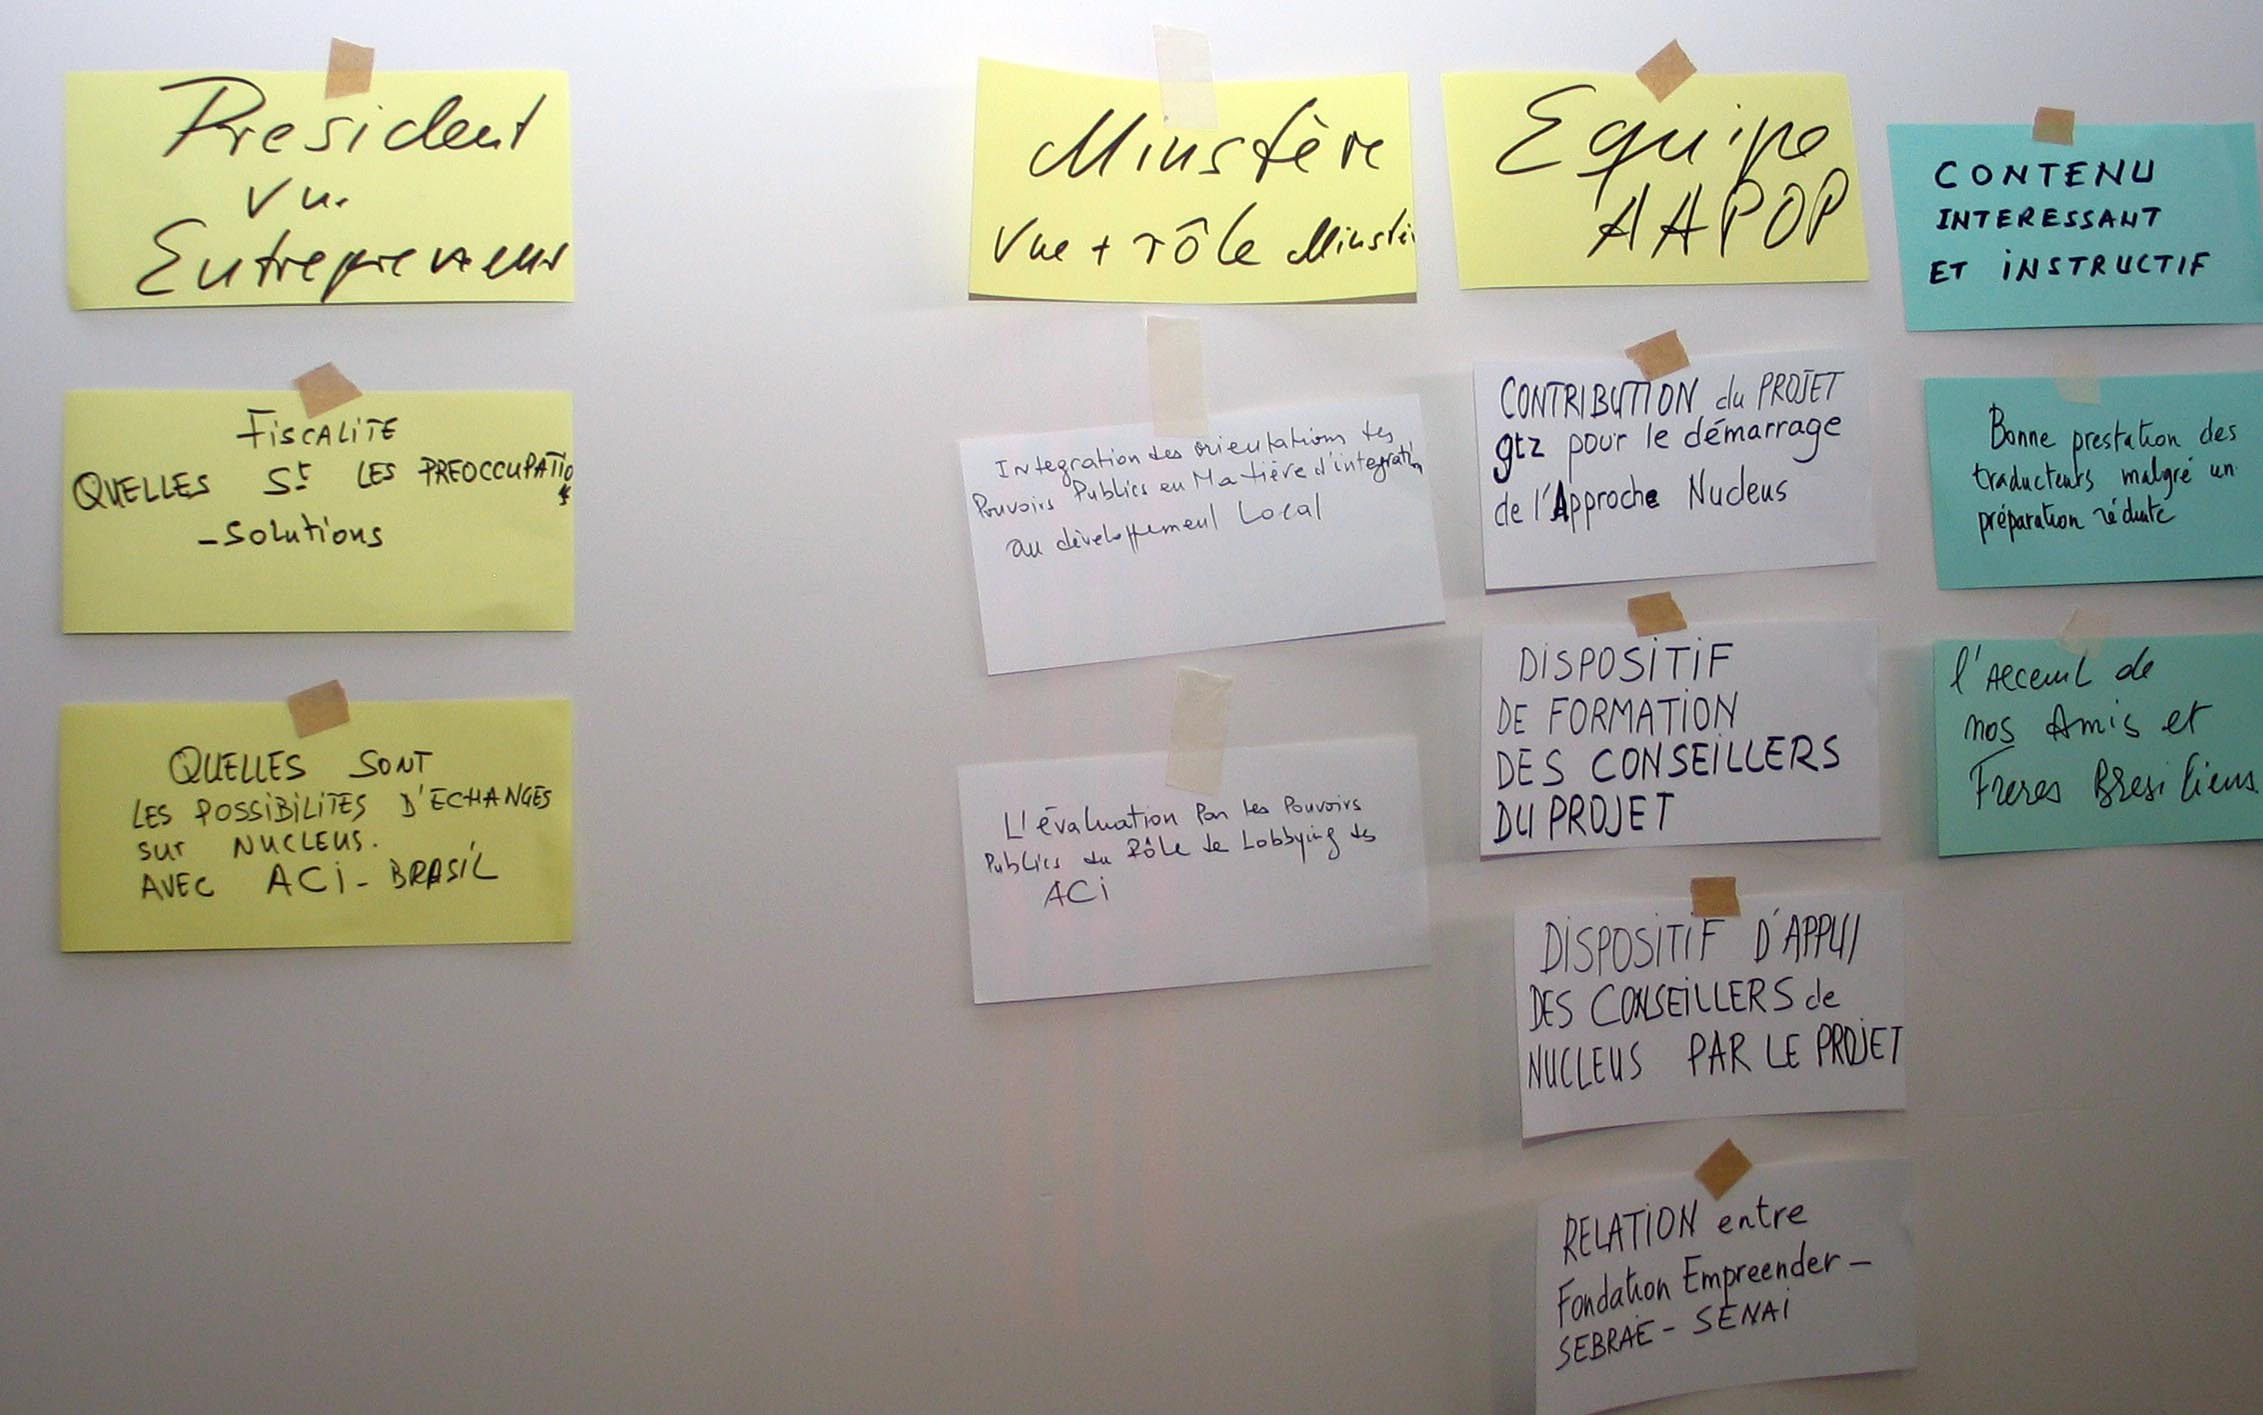 President
Vu.
Entrepreneur
FiSCALITE
QUELLES St LES PREOCCUPATIO
- Solutions
QUELLES SONT
LES POSSIBILITES D'ECHANGES
sur NUCLEUS.
AVEC ACI - BRASIL
Minstère
Vue + rôle Minstèr
Integration des orientations des
Pouvoirs Publics en Matière d'integration
au développement Local
L'évaluation Par les Pouvoirs
Publics du Rôle de Lobbying des
ACI
Equipe
AAPOP
CONTRIBUTION du PROJET
gtz pour le démarrage
de l'Approche Nucleus
DISPOSITIF
DE FORMATION
DES CONSEILLERS
DU PROJET
DISPOSITIF D'APPUI
DES CONSEILLERS de
NUCLEUS PAR LE PROJET
RELATION entre
Fondation Empreender -
SEBRAE - SENAI
CONTENU
INTERESSANT
ET INSTRUCTIF
Bonne prestation des
traducteurs malgré un
préparation réduite
l'Acceuil de
nos Amis et
Freres Bresiliens